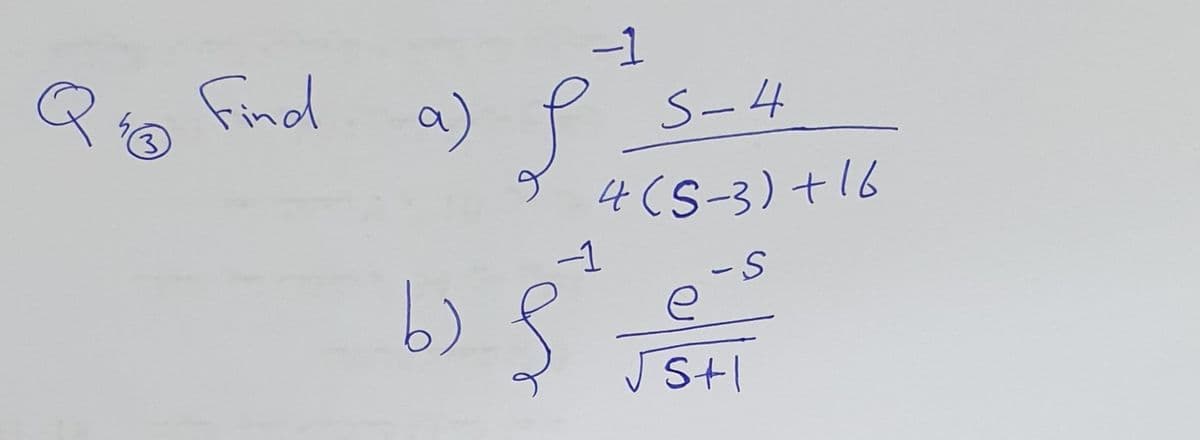 Q 3 Find a) ℒ⁻¹ S-4 / 4(S-3)+16
b) ℒ⁻¹ e^-S / √S+1